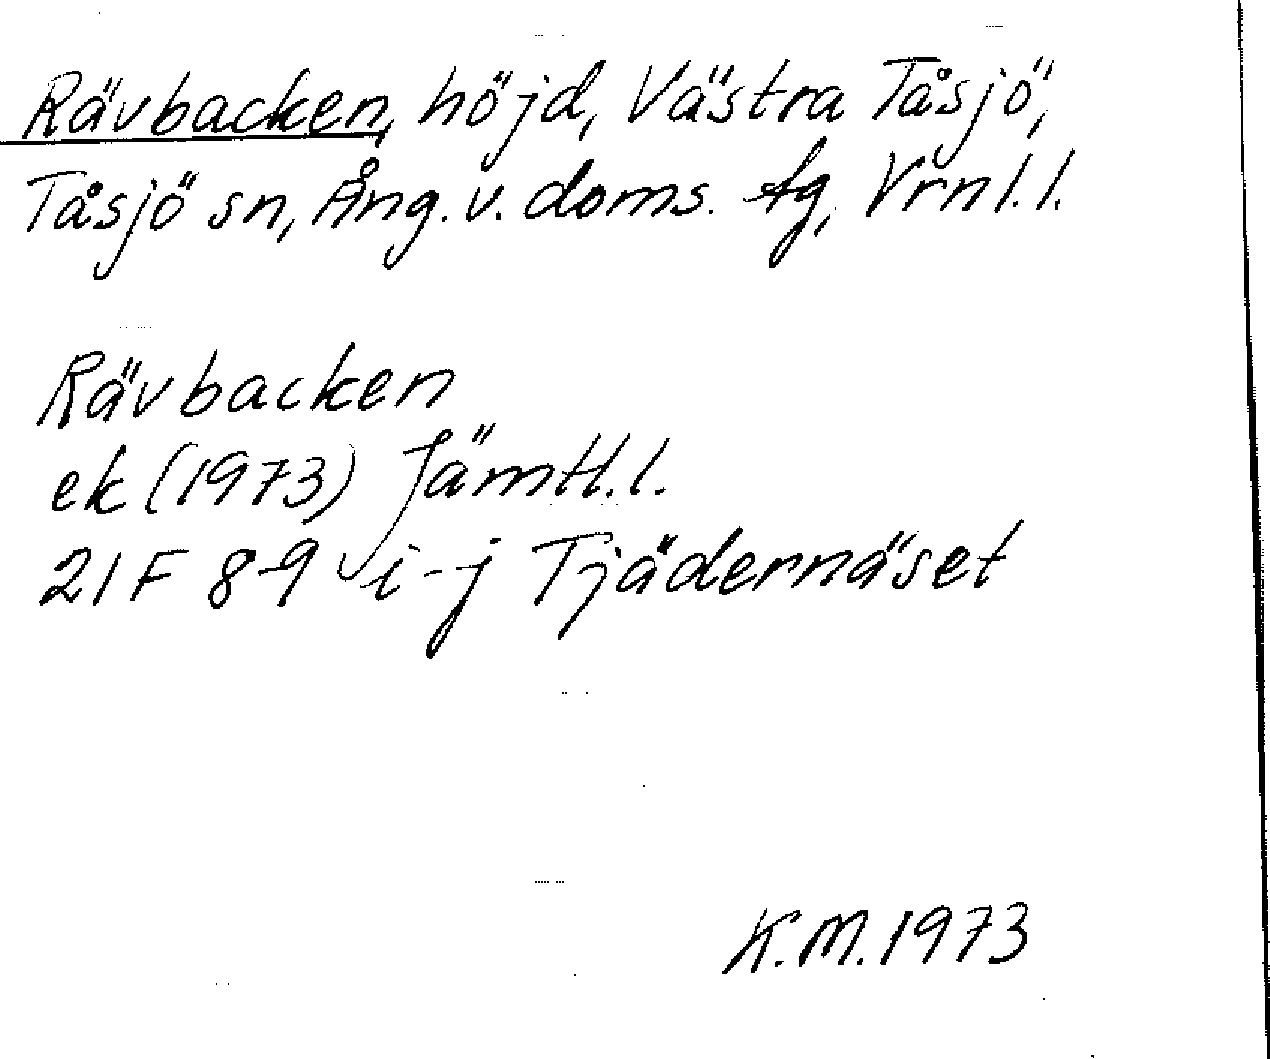 Rävbacken, höjd, Västra Tåsjö,
Tåsjö sn, Ång. v. doms. tg, Vrnl. l.
Rävbacken
ek (1973) Jämtl. l.
21 F 8-9 i-j Tjädernäset
K.M. 1973